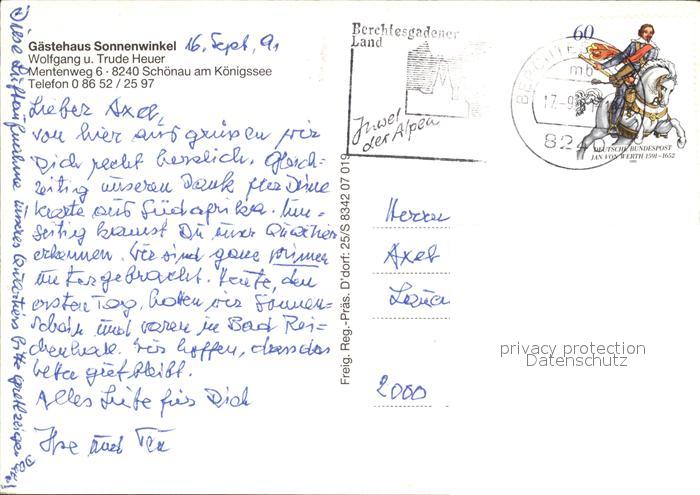 Gästehaus Sonnenwinkel 16. Sept. 91
Wolfgang u. Trude Heuer
Mentenweg 6 · 8240 Schönau am Königssee
Telefon 0 86 52 / 25 97
Lieber Axel,
von hier aus grüssen wir
Dich recht herzlich. Gleich-
zeitig unseren Dank für Deine
Karte aus Südafrika. Um-
seitig kannst Du unser Quartier
erkennen. Wir sind ganz prima
untergebracht. Heute, den
ersten Tag, hatten wir Sonnen-
schein und waren in Bad Rei-
chenhall. Wir hoffen, dass das
Wetter gut bleibt.
Alles Liebe für Dich
Ilse und
Diese Luftaufnahme unseres Quartiers bitte
Freig. Reg.-Präs. D'dorf: 25/S 8342 07 019
Berchtesgadener
Land
Juwel
der Alpen
BERCHTES
mb
17.-9.
824
60
DEUTSCHE BUNDESPOST
JAN VON WERTH 1591-1652
Herrn
Axel
2000
privacy protection
Datenschutz